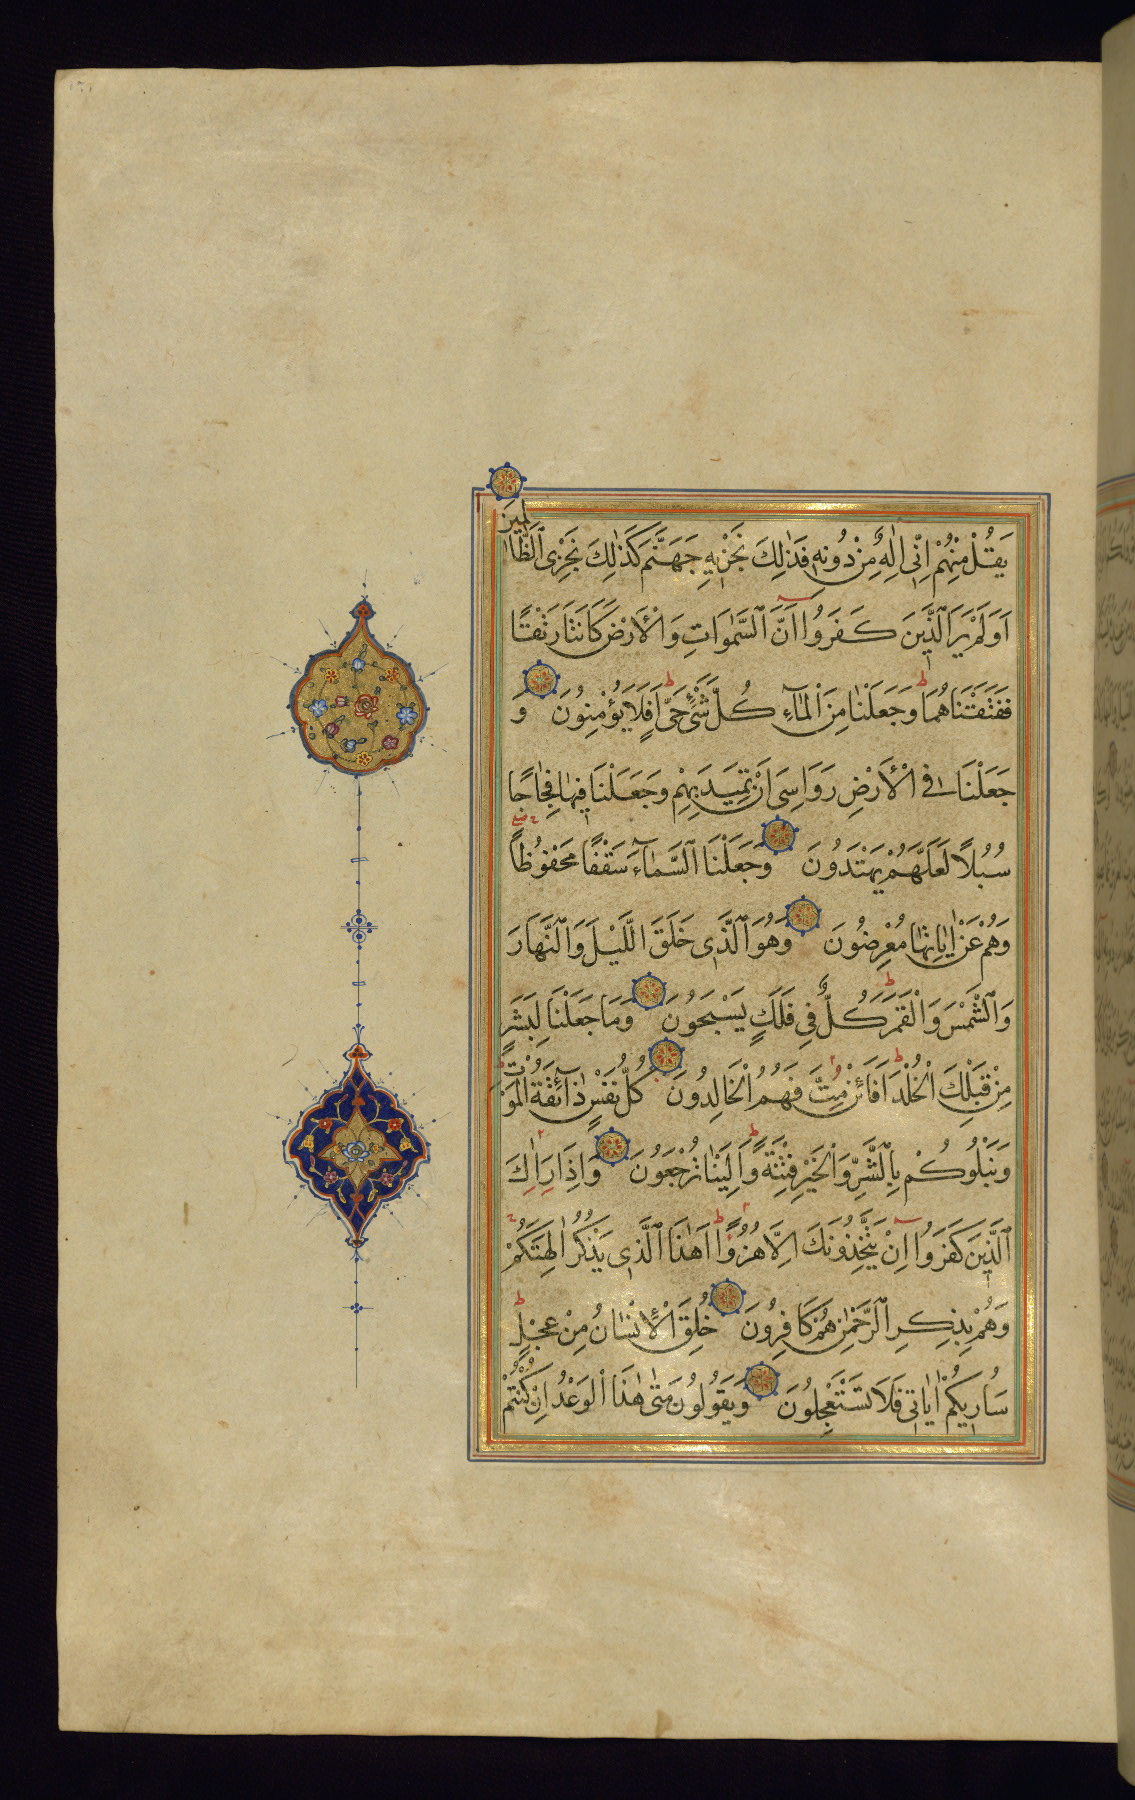 يَقُلْ مِنْهُمْ اِنّٖى اِلٰهٌ مِنْ دُونِهٖ فَذٰلِكَ نَجْزٖيهِ جَهَنَّمَ كَذٰلِكَ نَجْزِى ٱلظَّالِمٖينَ
اَوَلَمْ يَرَ ٱلَّذٖينَ كَفَرُوا اَنَّ ٱلسَّمٰوَاتِ وَالْاَرْضَ كَانَتَا رَتْقًا
فَفَتَقْنَاهُمَا وَجَعَلْنَا مِنَ الْمَآءِ كُلَّ شَىْءٍ حَىٍّ اَفَلَا يُؤْمِنُونَ وَ
جَعَلْنَا فِى الْاَرْضِ رَوَاسِىَ اَنْ تَمٖيدَ بِهِمْ وَجَعَلْنَا فٖيهَا فِجَاجًا
سُبُلًا لَعَلَّهُمْ يَهْتَدُونَ وَجَعَلْنَا ٱلسَّمَآءَ سَقْفًا مَحْفُوظًا
وَهُمْ عَنْ اٰيَاتِهَا مُعْرِضُونَ وَهُوَ ٱلَّذٖى خَلَقَ الَّيْلَ وَٱلنَّهَارَ
وَٱلشَّمْسَ وَالْقَمَرَ كُلٌّ فٖى فَلَكٍ يَسْبَحُونَ وَمَا جَعَلْنَا لِبَشَرٍ
مِنْ قَبْلِكَ الْخُلْدَ اَفَائِنْ مِتَّ فَهُمُ الْخَالِدُونَ كُلُّ نَفْسٍ ذَآئِقَةُ الْمَوْتِ
وَنَبْلُوكُمْ بِٱلشَّرِّ وَالْخَيْرِ فِتْنَةً وَاِلَيْنَا تُرْجَعُونَ وَاِذَا رَاٰكَ
ٱلَّذٖينَ كَفَرُوا اِنْ يَتَّخِذُونَكَ اِلَّا هُزُوًا اَهٰذَا ٱلَّذٖى يَذْكُرُ اٰلِهَتَكُمْ
وَهُمْ بِذِكْرِ ٱلرَّحْمٰنِ هُمْ كَافِرُونَ خُلِقَ الْاِنْسَانُ مِنْ عَجَلٍ
سَاُرٖيكُمْ اٰيَاتٖى فَلَا تَسْتَعْجِلُونَ وَيَقُولُونَ مَتٰى هٰذَا الْوَعْدُ اِنْ كُنْتُمْ